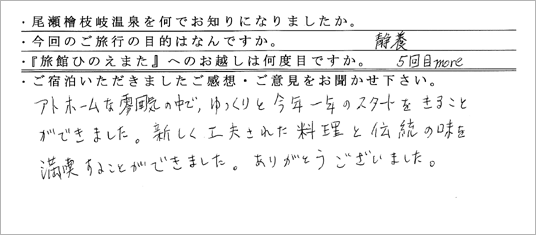 ・尾瀬檜枝岐温泉を何でお知りになりましたか。
・今回のご旅行の目的はなんですか。 静養
・『旅館ひのえまた』へのお越しは何度目ですか。 5回目more
・ご宿泊いただきましたご感想・ご意見をお聞かせ下さい。
アトホームな雰囲気の中で,ゆっくりと今年一年のスタートをきること
ができました。新しく工夫された料理と伝統の味を
満喫することができました。ありがとうございました。